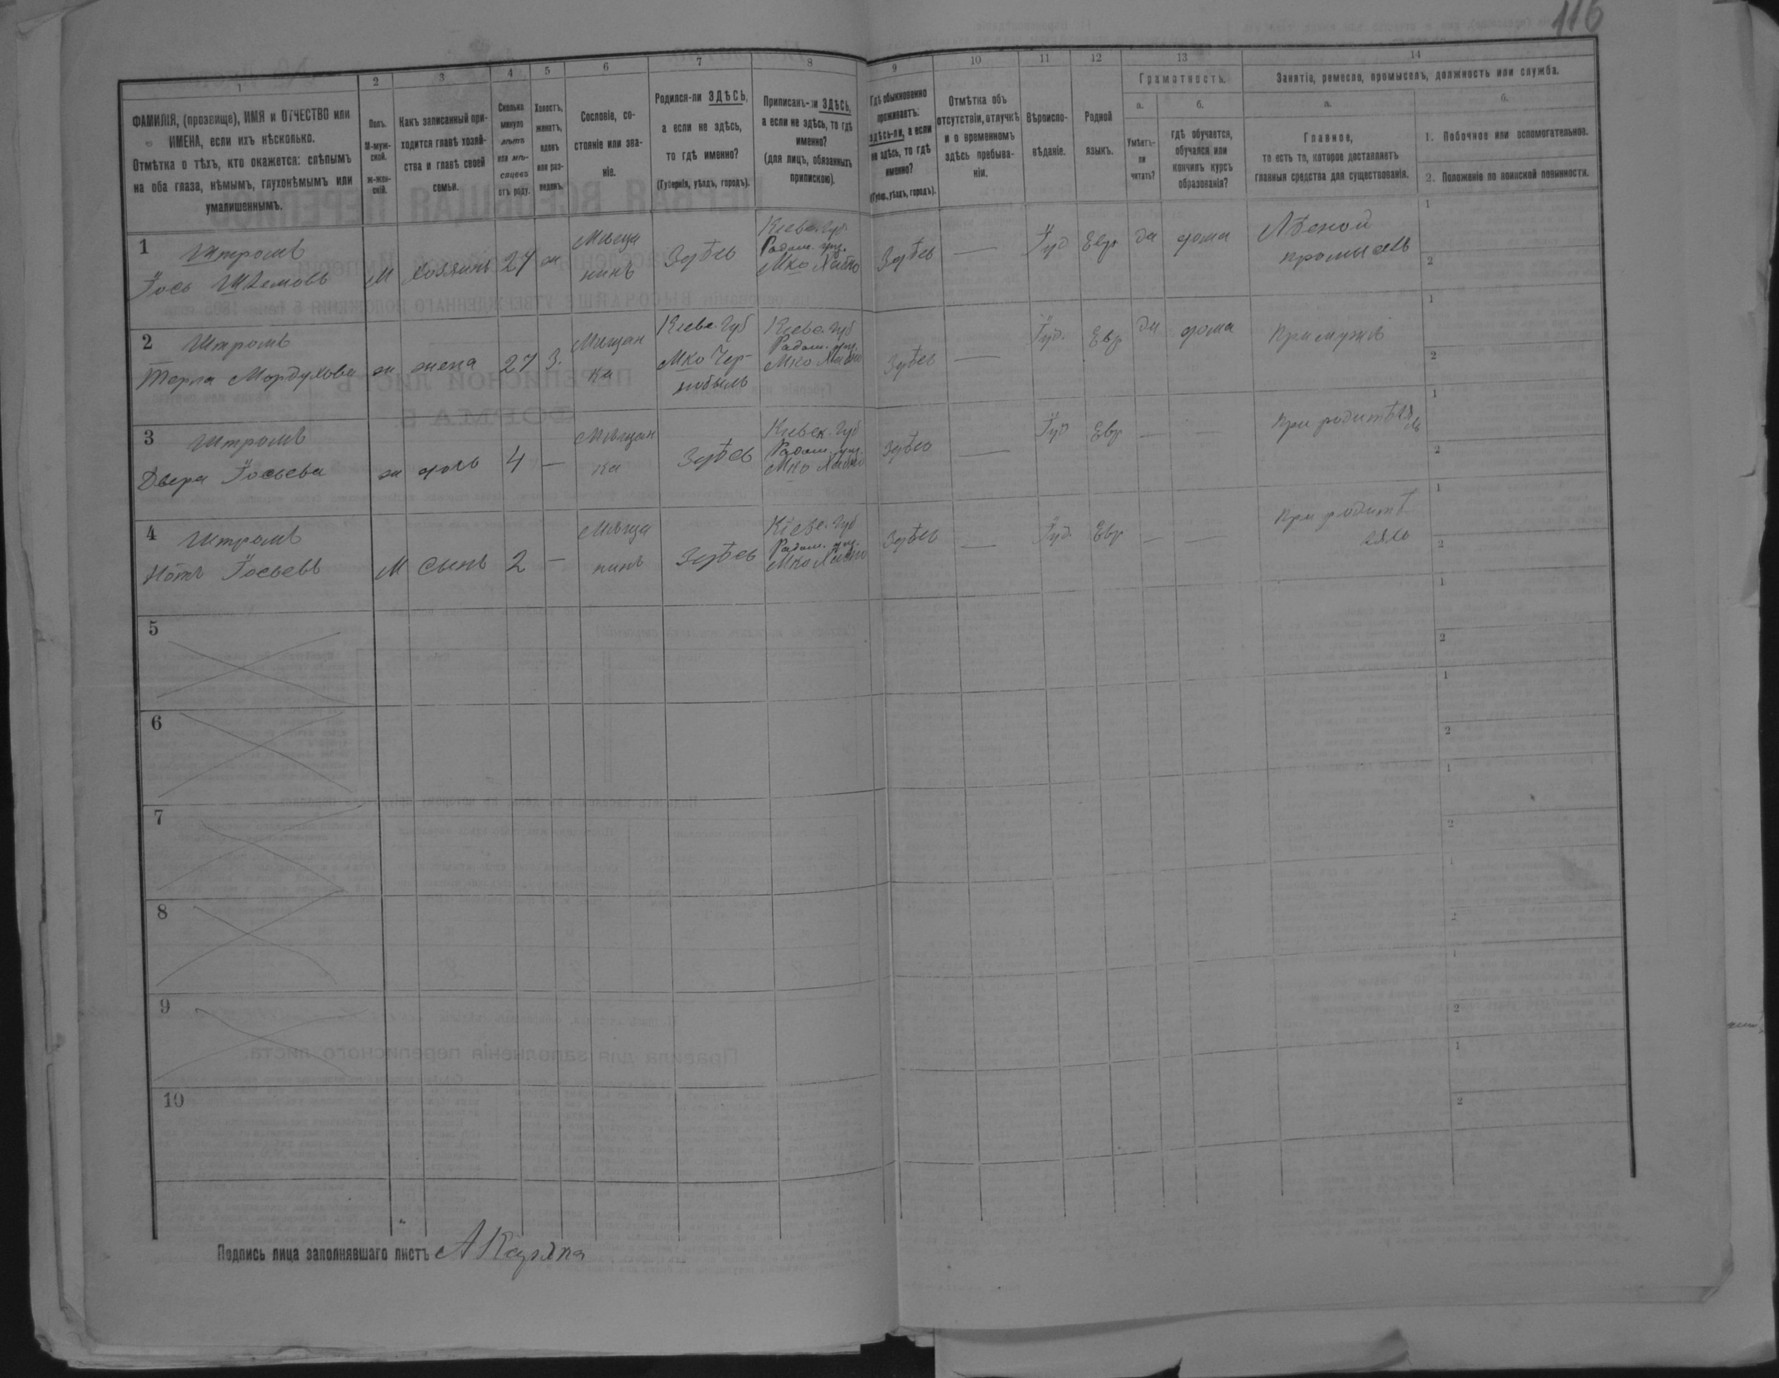 116
1
ФАМИЛІЯ, (прозвище), ИМЯ и ОТЧЕСТВО или
ИМЕНА, если ихъ нѣсколько.
Отмѣтка о тѣхъ, кто окажется: слѣпымъ
на оба глаза, нѣмымъ, глухонѣмымъ или
умалишеннымъ.
2
Полъ.
М-муж-
ской.
ж-жен-
скій.
3
Какъ записанный при-
ходится главѣ хозяй-
ства и главѣ своей
семьи.
4
Сколько
минуло
лѣтъ
или мѣ-
сяцевъ
отъ роду.
5
Холостъ,
женатъ,
вдовъ
или раз-
веденъ.
6
Сословіе, со-
стояніе или зва-
ніе.
7
Родился-ли ЗДѢСЬ,
а если не здѣсь,
то гдѣ именно?
(Губернія, уѣздъ, городъ).
8
Приписанъ-ли ЗДѢСЬ,
а если не здѣсь, то гдѣ
именно?
(для лицъ, обязанныхъ
припискою).
9
Гдѣ обыкновенно
проживаетъ:
здѣсь-ли, а если
не здѣсь, то гдѣ
именно?
(Губер., уѣздъ, городъ).
10
Отмѣтка объ
отсутствіи, отлучкѣ
и о временномъ
здѣсь пребыва-
ніи.
11
Вѣроиспо-
вѣданіе.
12
Родной
языкъ.
13
Грамотность.
а.
Умѣетъ-
ли
читать?
б.
гдѣ обучается,
обучался или
кончилъ курсъ
образованія?
14
Занятіе, ремесло, промыселъ, должность или служба.
а.
Главное,
то есть то, которое доставляетъ
главныя средства для существованія.
б.
1. Побочное или вспомогательное.
2. Положеніе по воинской повинности.
1 Штромъ
Іось М хозяинъ 27 ж Мѣща
нинъ Здѣсь Кіевс. Губ.
Радом. уѣз.
Мко Здѣсь — Іуд Евр да дома Лѣсной
промыселъ
1
2
2 Штромъ
Мордухова ж жена 27 З. Мѣщан
ка Кіевс. Губ
Мко Чер-
нобыль Кіевс. Губ
Радом. уѣз.
Мко Здѣсь — Іуд. Евр да дома При мужѣ
1
2
3 Штромъ
Двера Іосьева ж дочь 4 — Мѣщан
ка Здѣсь Кіевск. Губ
Радом. уѣз.
Мко Здѣсь — Іуд Евр — — При родителяхъ
1
2
4 Штромъ
Іосьевъ М сынъ 2 — Мѣща
нинъ Здѣсь Кіев. Губ
Радом. уѣз.
Мко Здѣсь — Іуд Евр — — При родите
ляхъ
1
2
5
1
2
6
1
2
7
1
2
8
1
2
9
1
2
10
1
2
Подпись лица заполнявшаго листъ